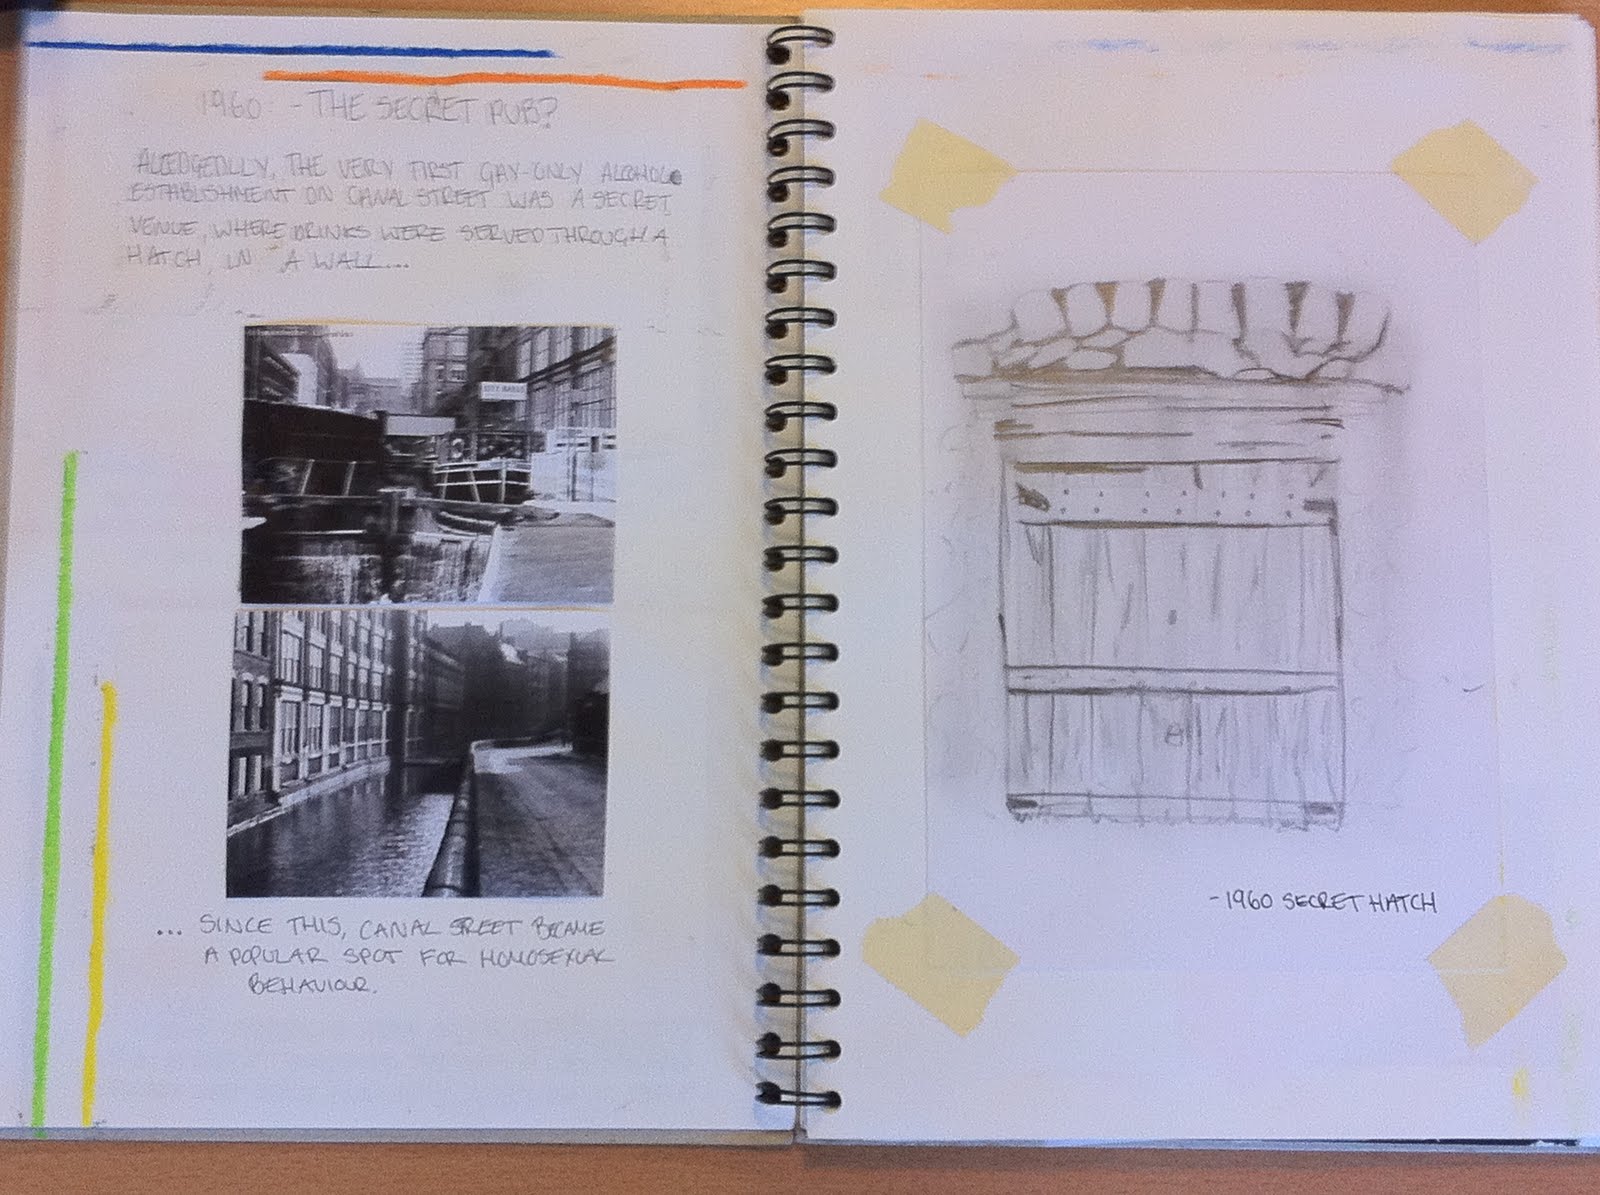 1960 - THE SECRET PUB?
ALLEDGEDLLY, THE VERY FIRST GAY-ONLY ALCOHOL
ESTABLISHMENT ON CANAL STREET WAS A SECRET
VENUE, WHERE DRINKS WERE SERVED THROUGH A
HATCH, IN A WALL...
... SINCE THIS, CANAL STREET BECAME
A POPULAR SPOT FOR HOMOSEXUAL
BEHAVIOUR.
- 1960 SECRET HATCH